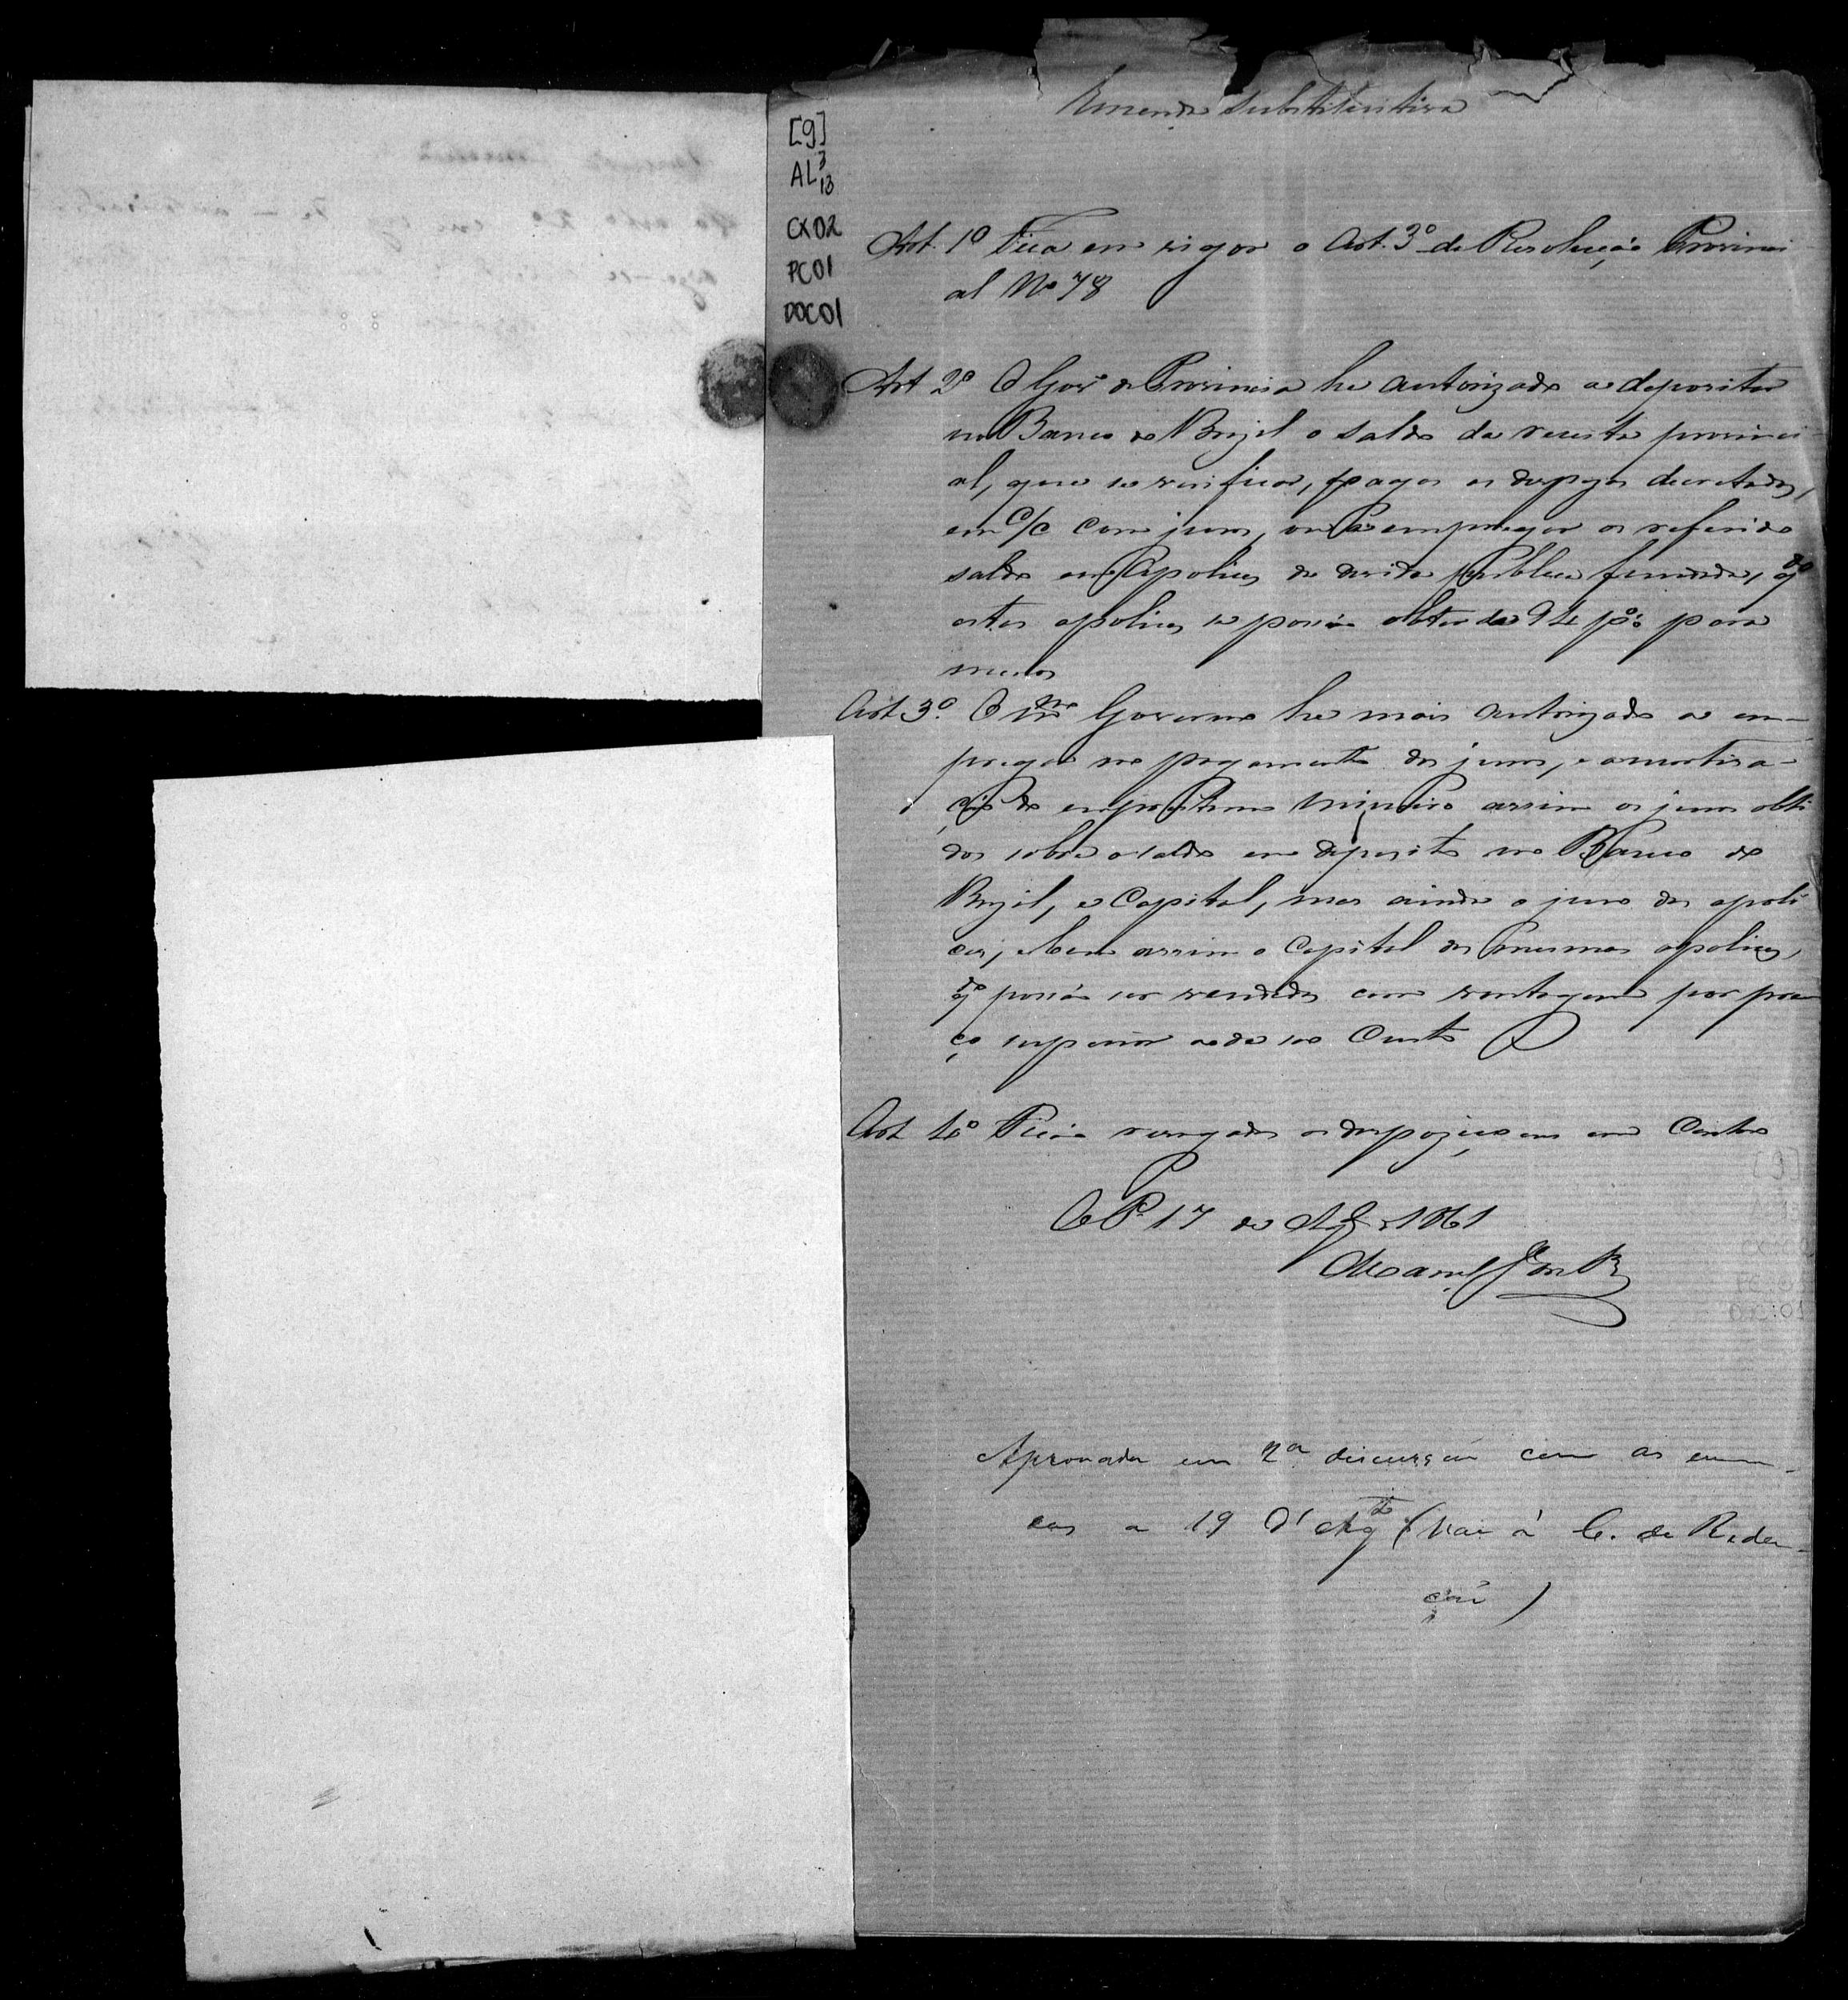 Emenda substitutiva
[9]
AL 3 13
CX02
PC01
DOC01
Art. 1º Fica em vigor o Art. 3º da Resolução Provinci
al Nº 78
Art 2º O Govº da Provincia he autorizado a depositar
no Banco do Brazil o saldo da receita provinci-
al, que se verificar, pagas as despezas decretadas,
em c/c com juros, ou a empregar o referido
saldo em Apolices da divida publica fundada, qdo
estas apolices se possão obter de 94 p% para
menos
Art 3º O mmo Governo he mais autorizado a em-
pregar no pagamento dos juros, e amortisa-
ção do emprestimo Mineiro assim os juros obti
dos sobre o saldo em deposito no Banco do
Brazil, e Capital, mas ainda o juro das apoli
ces, e bem assim o Capital das mesmas apolices,
qdo possão ser vendidas com vantagem por pre
ço superior ao de seo Custo
Art 4º Ficão revogadas as dispozições em Contro
17 de Ag 1861
Manoel
Aprovada em 2ª discussão com as emen-
das a 19 d'Agto (Vai á C. de Redac-
ção)